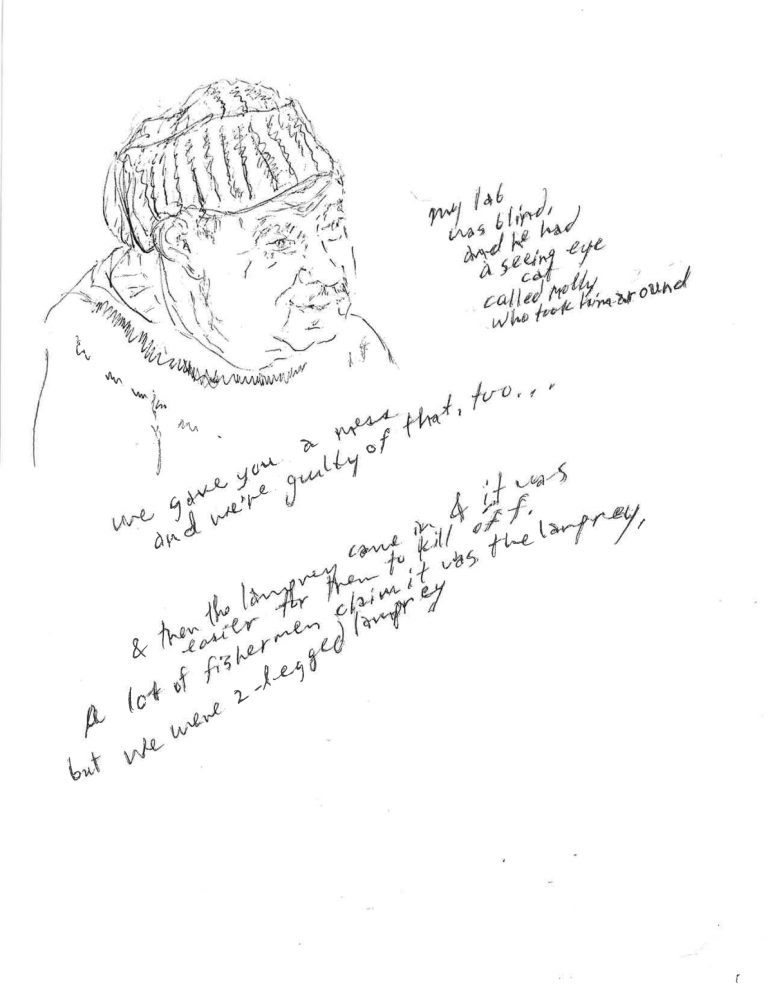 my lab
was blind,
and he had
a seeing eye
cat
called Molly
who took him around
we gave you a mess
and we're guilty of that, too...
& then the lamprey came in & it was
easier for them to kill off.
A lot of fishermen claim it was the lamprey,
but we were 2-legged lamprey